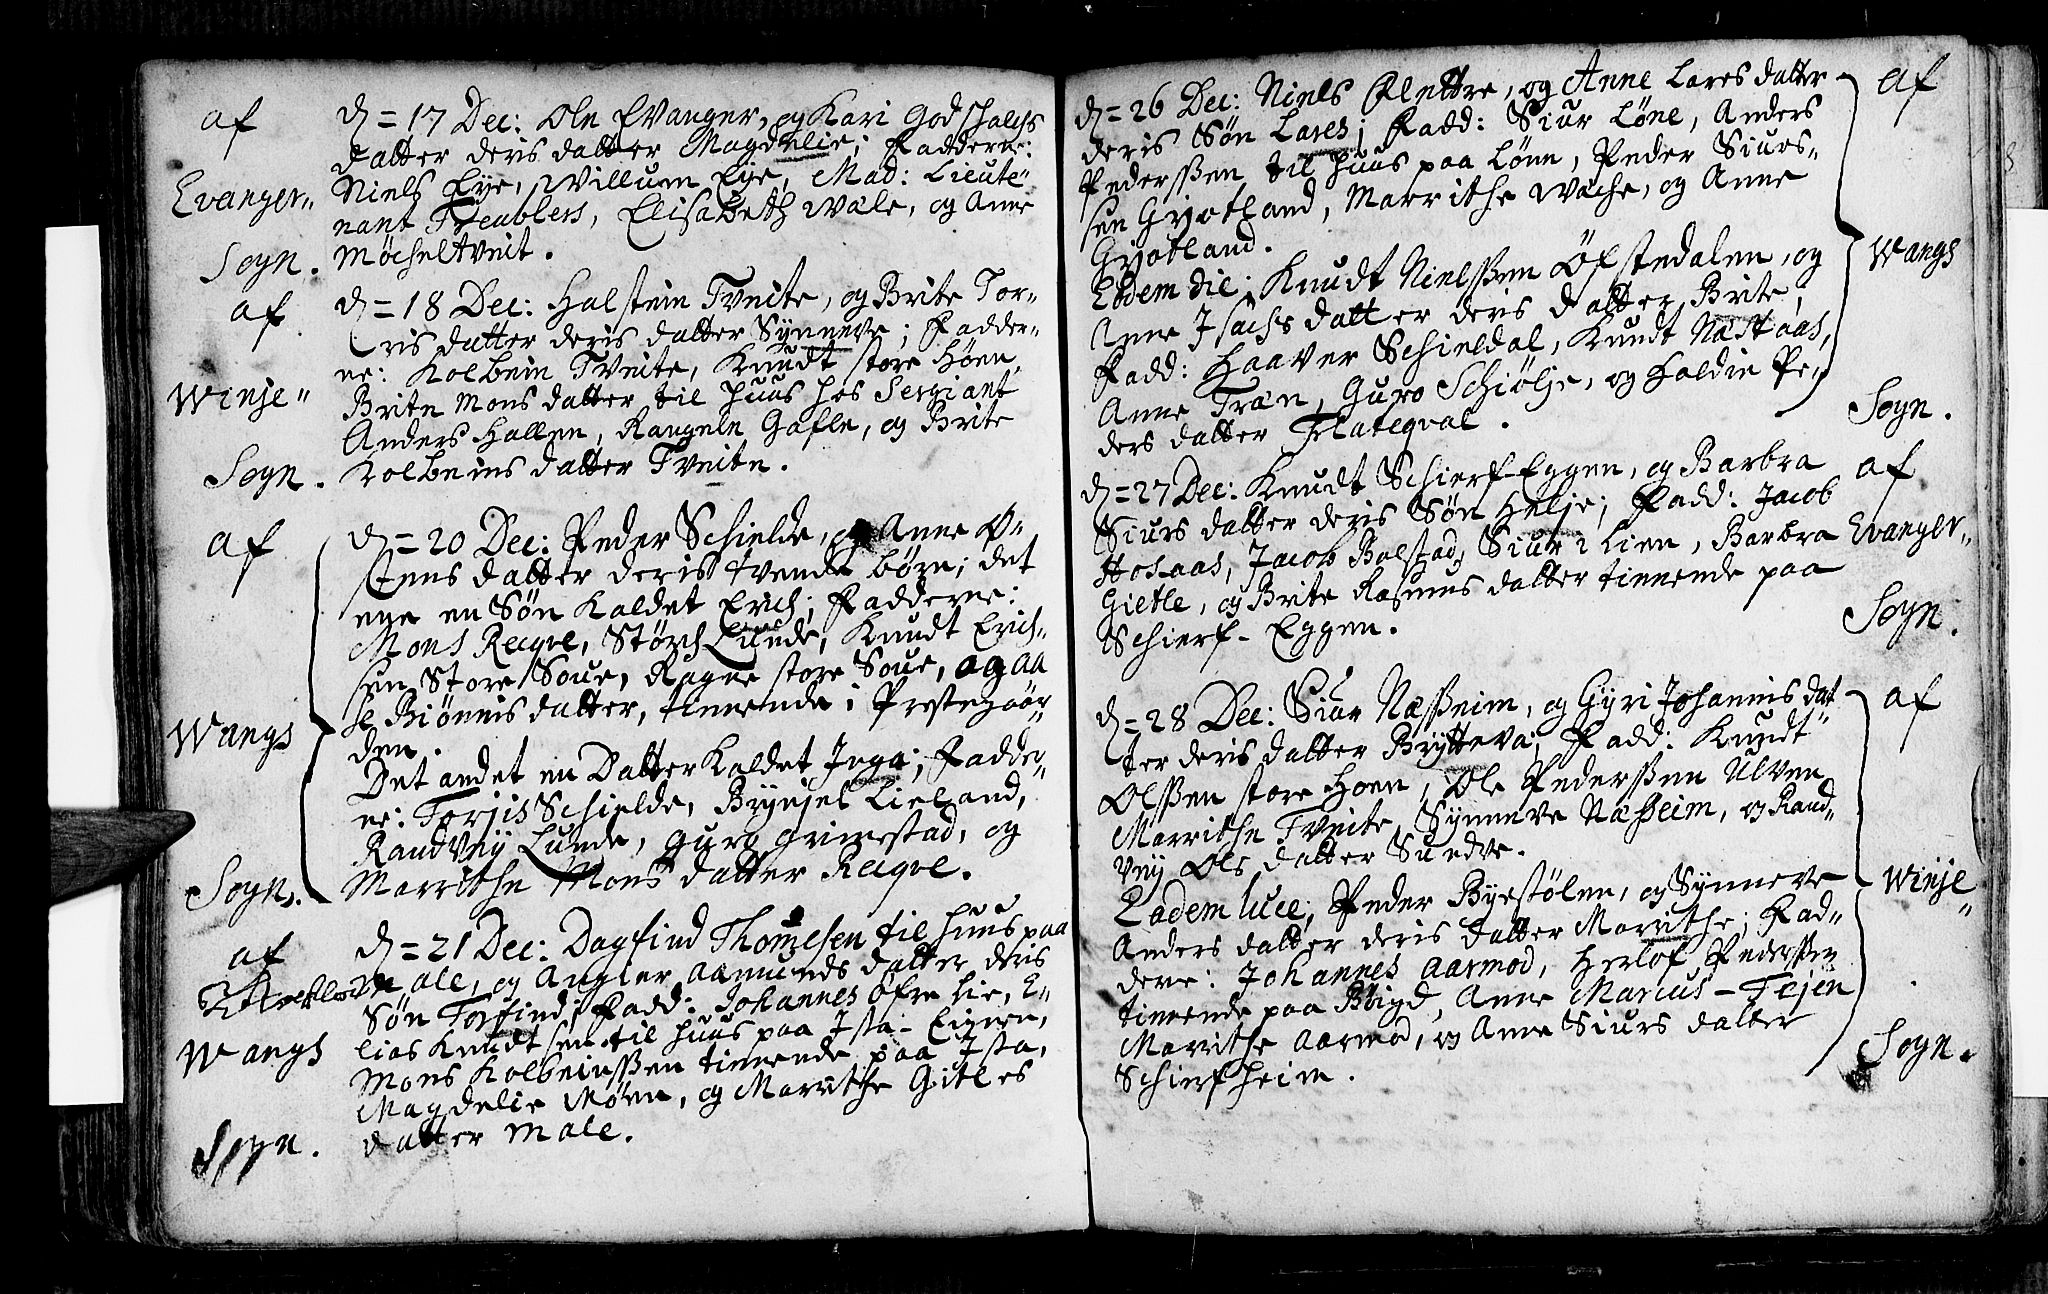 af
Evanger„
Sogn.
d = 17 Dec: Ole Evanger, og Kari Godschalchs
datter deris datter Magdelie; Fadderne:
Niels Eye, Willum Eye, Mad: Lieute„
nant Treublers, Elisabeth Wale, og Anne
Möcheltveit.
af
Winje„
Sogn.
d = 18 Dec: Halstein Tveite, og Brite Tor„
ris datter deris datter Synneve; Fadder„
ne: Kolbein Tveite, Knudt store Höen,
Brite Mons datter til huus hos Sergiant
Anders Hallen, Rangele Gafle, og Brite
Kolbeins datter Tveite.
af
Wangs
Sogn.
d = 20 Dec: Peder Schielde, og Anne Ø„
stens datter deris tvende börn; det
ene en Sön kaldet Erich; Fadderne:
Mons Recqve, Störch Lunde, Knudt Erich„
sen Store Soue, Ragne store Soue, og Aa
se Biönnis datter, tienende i Prestegaar„
den.
Det andet en Datter kaldet Inga; Fadder„
ne: Torjis Schielde, Brynjel Lieland,
Randvey Lunde, Guro Grimestad, og
Marrithe Mons datter Recqve.
af
Wangs
Sogn.
d = 21 Dec: Dagfind Thomesen til huus paa
Male, og Angler Aamunds datter deris
Sön Torfind; Fadd: Johannes Öfre Lie, E„
lias Knudtsen til huus paa Ista, Einen,
Mons Kolbeinsßen tienende paa Ista,
Magdelie Möen, og Marrithe Gitles
datter Male.
af
Wangs
Sogn.
d = 26 Dec: Niels Flettre, og Anne Lares datter
deris Sön Lares; Fadd: Siur Löne, Anders
Pedersßen til huus paa Löne, Peder Siurs„
sen Gjotland, Marrithe Wache, og Anne
Gjotland.
Eodem die; Knudt Nielsßen Öfstedalen, og
Anne Isachs datter deris datter Brite,
Fadd: Haaver Schieldal, Knudt Næstaas,
Anne Træn, Guro Schiölje, og Holdie Pe„
ders datter Flateqval.
af
Evanger„
Sogn.
d = 27 Dec: Knudt Schierf-Eggen, og Barbra
Siurs datter deris Sön Helje; Fadd: Jacob
Hosaas, Jacob Bolstad, Siur i Lien, Barbra
Gietle, og Brite Rasmus datter tienende paa
Schierf-Eggen.
af
Winje„
Sogn.
d = 28 Dec: Siur Næsheim, og Gyri Johannis dat„
ter deris datter Brytteva; Fadd: Knudt
Olsßen store Hoen, Ole Pedersßen Ulven
Marrithe Tveite, Synneve Næsheim, og Rand„
vey Ols datter Suedve.
Eadem luce; Peder Byestölen, og Synneve
Anders datter deris datter Marrithe; Fad„
dere: Johannes Aarmod, Herlof Pedersßen
tienende paa Bÿgd, Anne Marcus-Tejen
Marrithe Aarmod, og Anne Siurs datter
Schierfheim.